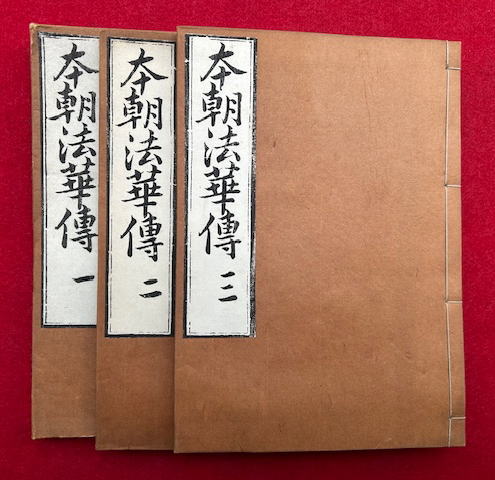 本朝法華傳 一
本朝法華傳 二
本朝法華傳 三